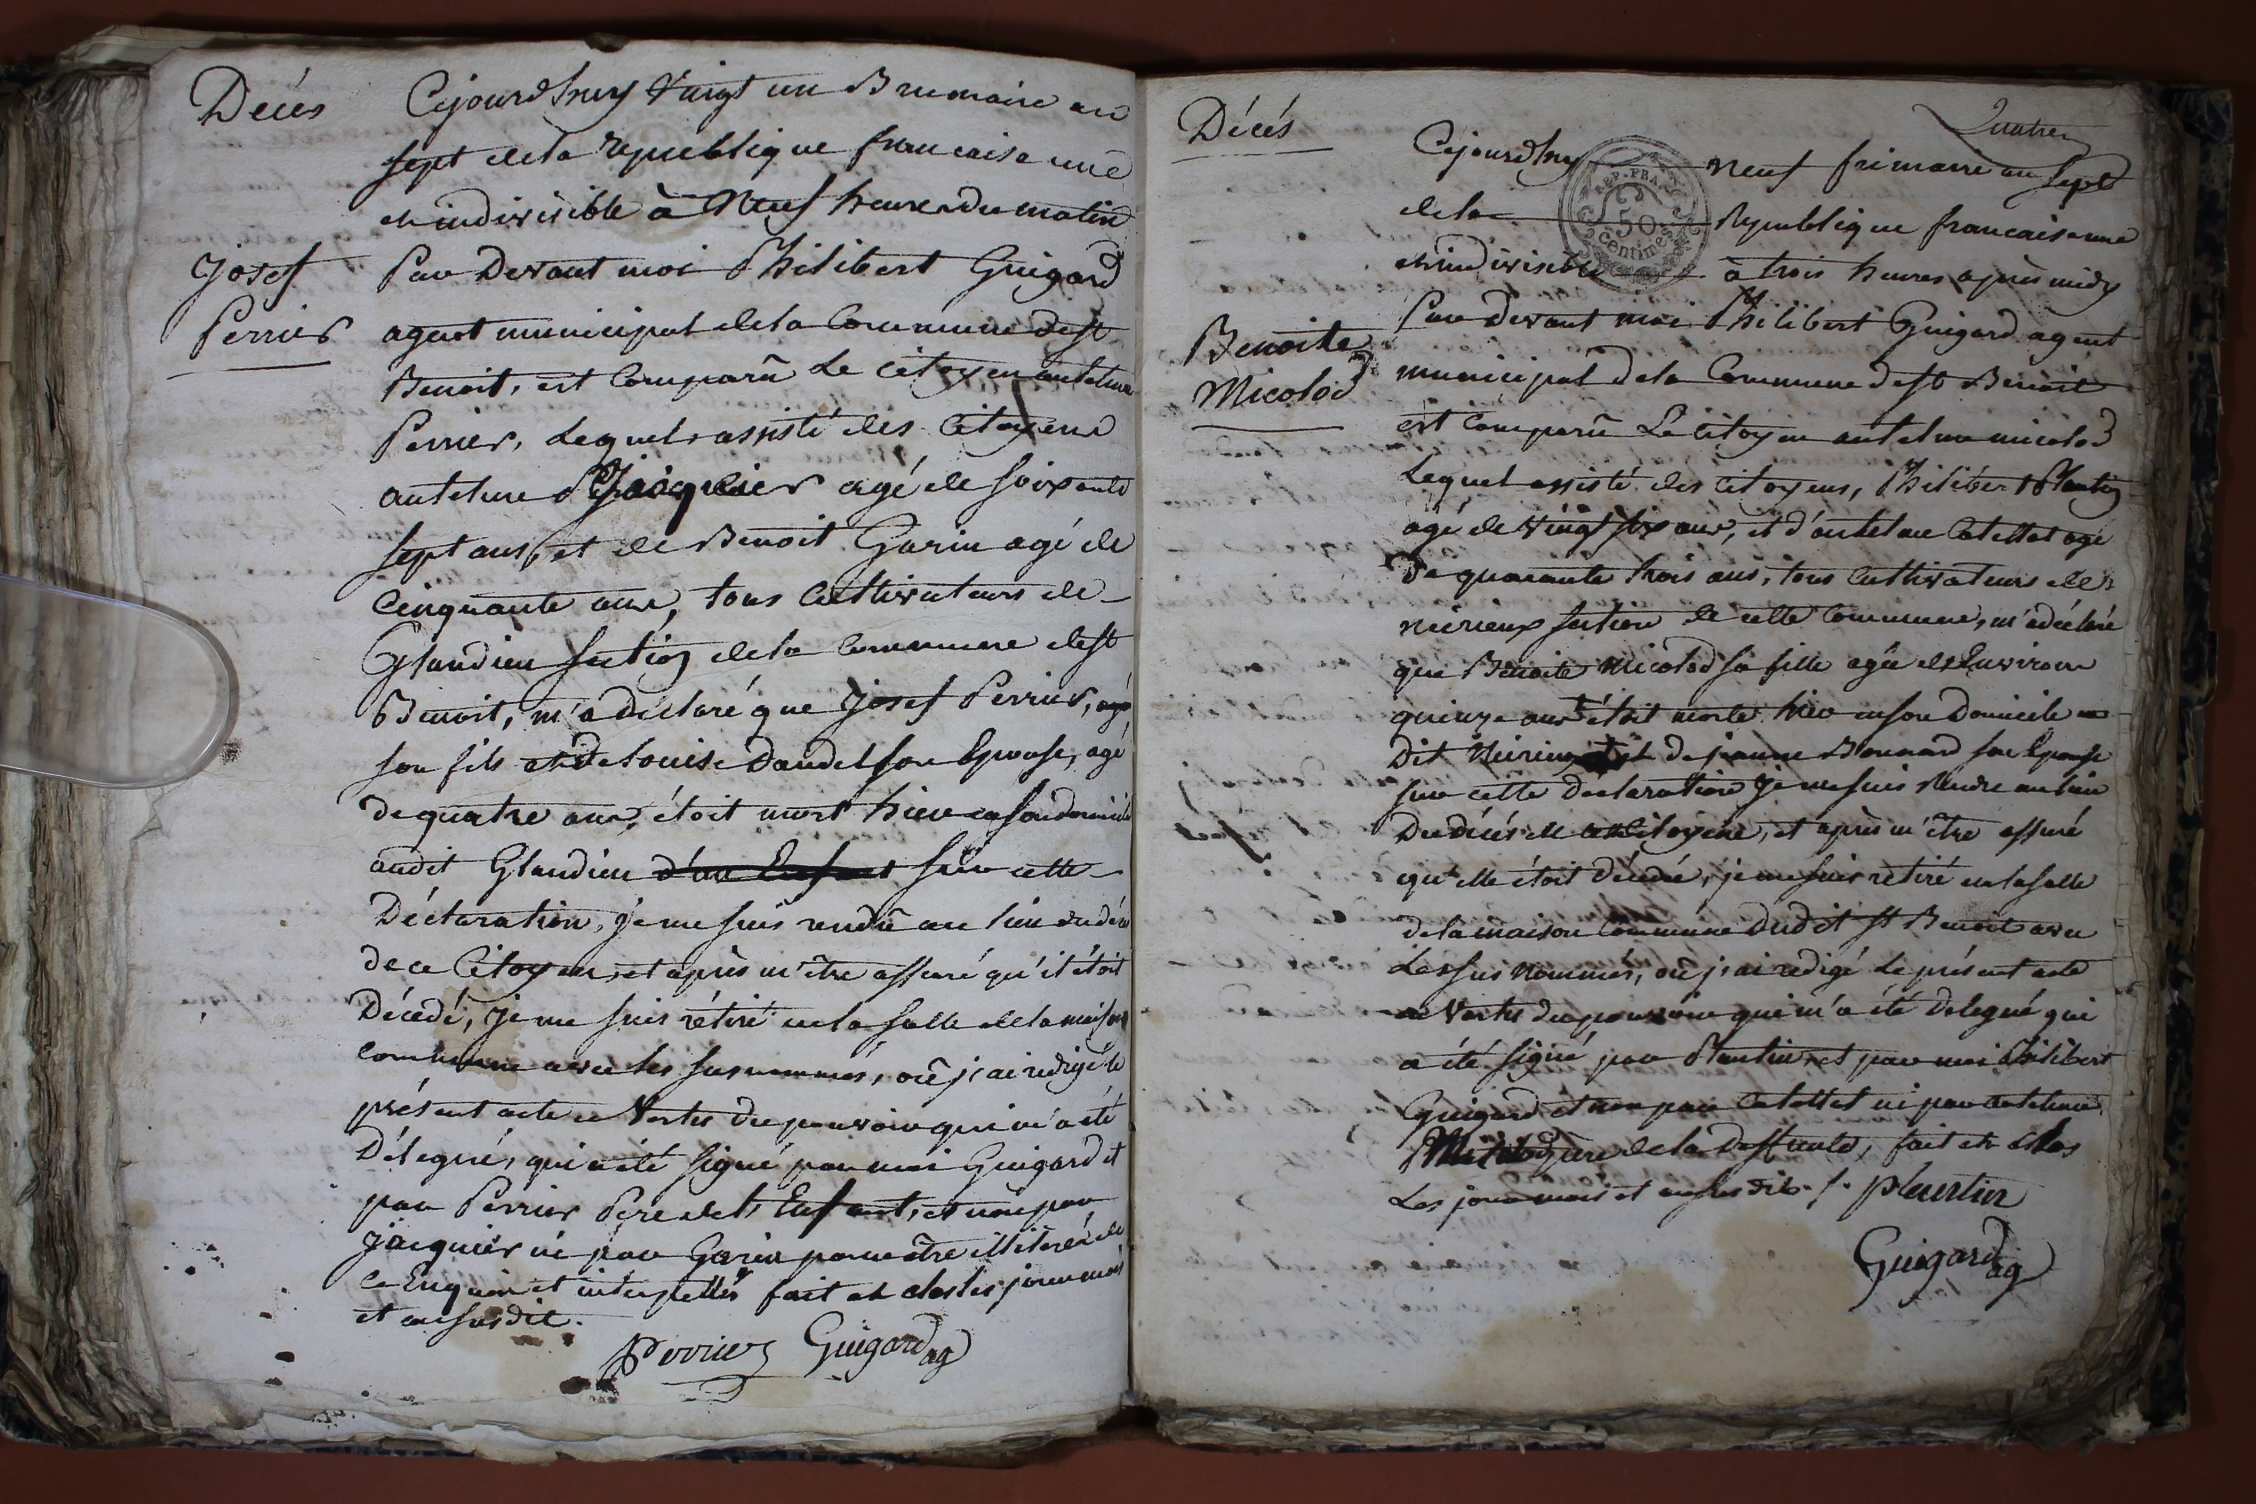 Décés
Josef
Perrier
Cejourd'huy Vingt un Brumaire an
sept dela republique francaise une
et indivisible à Neuf heures du matin
Par Devant moi Philibert Guigard
agent municipal dela Commune de st
Benoit, est Comparû Le Citoyen antelme
Perrier, Lequel assisté des Citoyens
antelme Jacquier agé de soixante
sept ans, et de Benoit Garin agé de
Cinquante ans, tous Cultivateurs de
Glandieu Section dela Commune de st
Benoit, m'a declaré que Josef Perrier, agé
son fils et De Louise Daudel son Epouse, agé
de quatre ans, étoit mort hier en son domicile
audit Glandieu d'un Enfant sur cette
Déclaration, je me suis rendû au lieu du décés
de ce Citoyen, et après m'être assuré qu'il étoit
Décedé, je me suis rétiré en la salle dela maison
commune avec les susnommés, où j'ai redigé le
présent acte en Vertu du pouvoir qui m'a été
Délegué, qui a été signé par moi Guigard et
par Perrier Pere de l'Enfant, et non par
Jacquier ni par Garin pour être illiterés de
ce Enquis et interpellés fait et clos les jour mois
et an susdit.
Perrier Guigard ag
Quatre
Décés
Benoite
Micolod
Cejourd'huy neuf frimaire an sept
dela Republique francaise une
et indivisible à trois heures après midy
REP. FRA.
50
centimes
Par devant moi Philibert Guigard agent
municipal dela Commune de st Benoit
est Comparû Le Citoyen antelme micolod
Lequel assisté des Citoyens, Philibert Plantin
agé de Vingt six ans, et d'antelme Catellet agé
De quarante trois ans, tous Cultivateurs de
nérieux section de cette Commune, m'a déclaré
que Benoite Micolod sa fille agée d'Environ
quinze ans étoit morte hier en son Domicile au
Dit Nérieux et de jeanne Bonnard son Epouse
sur cette Declaration je me suis Rendu au lieu
Du décés de cette Citoyene, et après m'être assuré
qu'elle étoit décedée, je me suis rétiré en la salle
de la maison Commune Dudit st Benoit avec
Les sus nommés, où j'ai redigé le présent acte
en Vertu du pouvoir qui m'a été Delegué qui
a été signé par Plantin, et par moi Philibert
Guigard et non par Catellet ni par antelme
Micolod pere de la Deffunte, fait et clos
Les jour mois et an susdit. f. plantin
Guigard ag